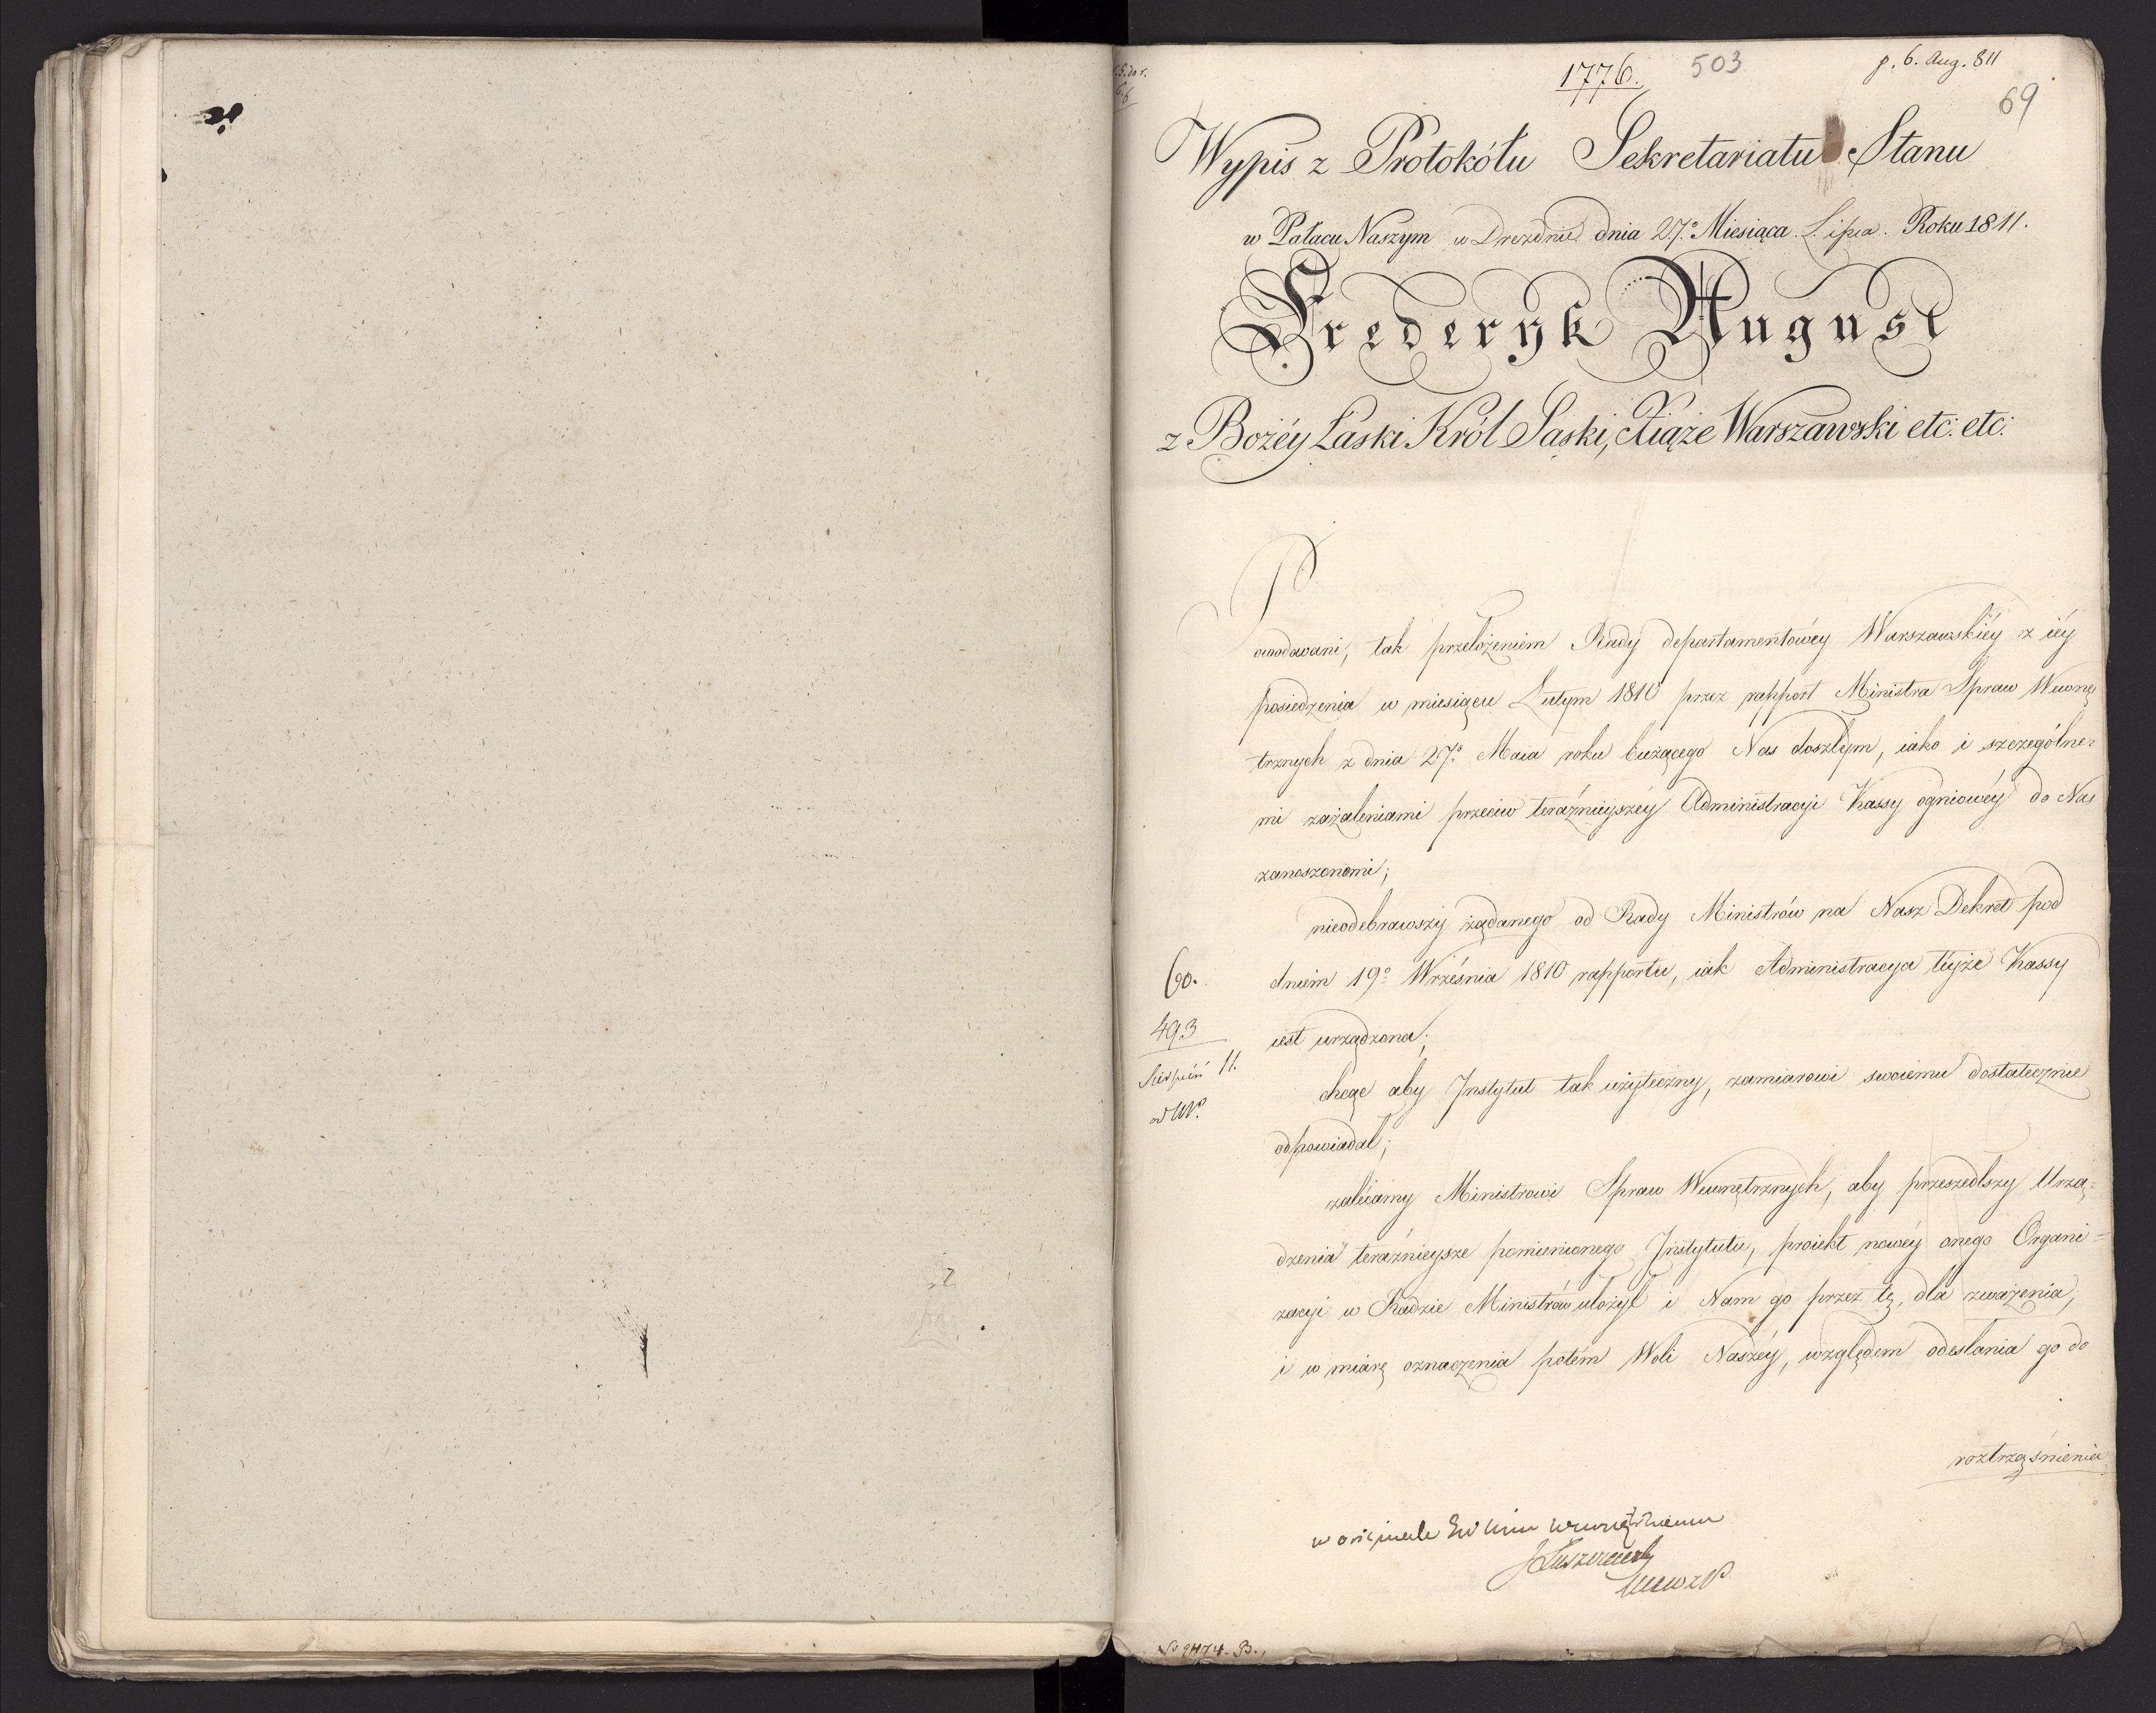 1776.
503
p. 6. Aug. 811
69
Wypis z Protokółu Sekretariatu Stanu
w Pałacu Naszym w Dreźdnie dnia 27.° Miesiąca Lipca. Roku 1811.
Frederyk August
z Bożéy Łaski Król Saski, Xiąże Warszawski etc: etc:
Powodowani, tak przełożeniem Rady departamentowéy Warszawskiéy z iéy
posiedzenia w miesiącu Lutym 1810 przez rapport Ministra Spraw Wewnę
trznych z dnia 27.° Maia roku bieżącego Nas doszłym, iako i szczególne-
mi zażaleniami przeciw teraźnieyszéy Administracyi Kassy ogniowéy do Nas
zanoszonemi;
nieodebrawszy żądanego od Rady Ministrów na Nasz Dekret pod
dniem 19° Września 1810 rapportu, iak Administracya téyże Kassy
iest urządzona;
chcąc aby Instytut tak użyteczny, zamiarowi swoiemu dostatecznie
odpowiadał;
zalécamy Ministrowi Spraw Wewnętrznych, aby przeszedłszy Urzą-
dzenia teraźnieysze pomienionego Instytutu, proiekt nowéy onego Organi-
zacyi w Radzie Ministrów ułożył i Nam go przez tę, dla zważenia,
i w miarę oznaczenia potém Woli Naszéy, względem odesłania go do
roztrząśnienia
60.
493
Sierpień 11.
w originale
№ 9474. B.